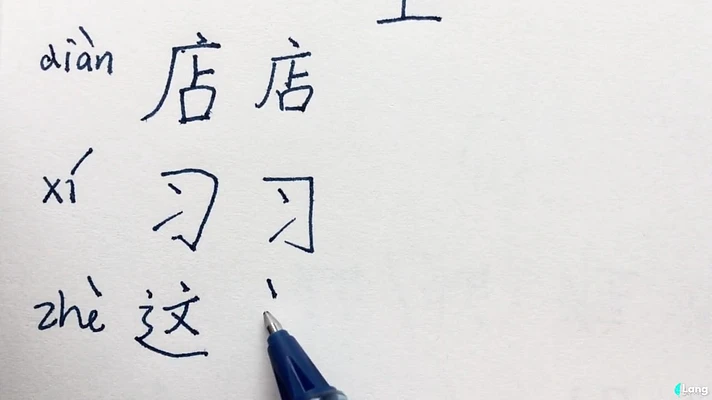 diàn 店 店
xí 习 习
zhè 这
Lang